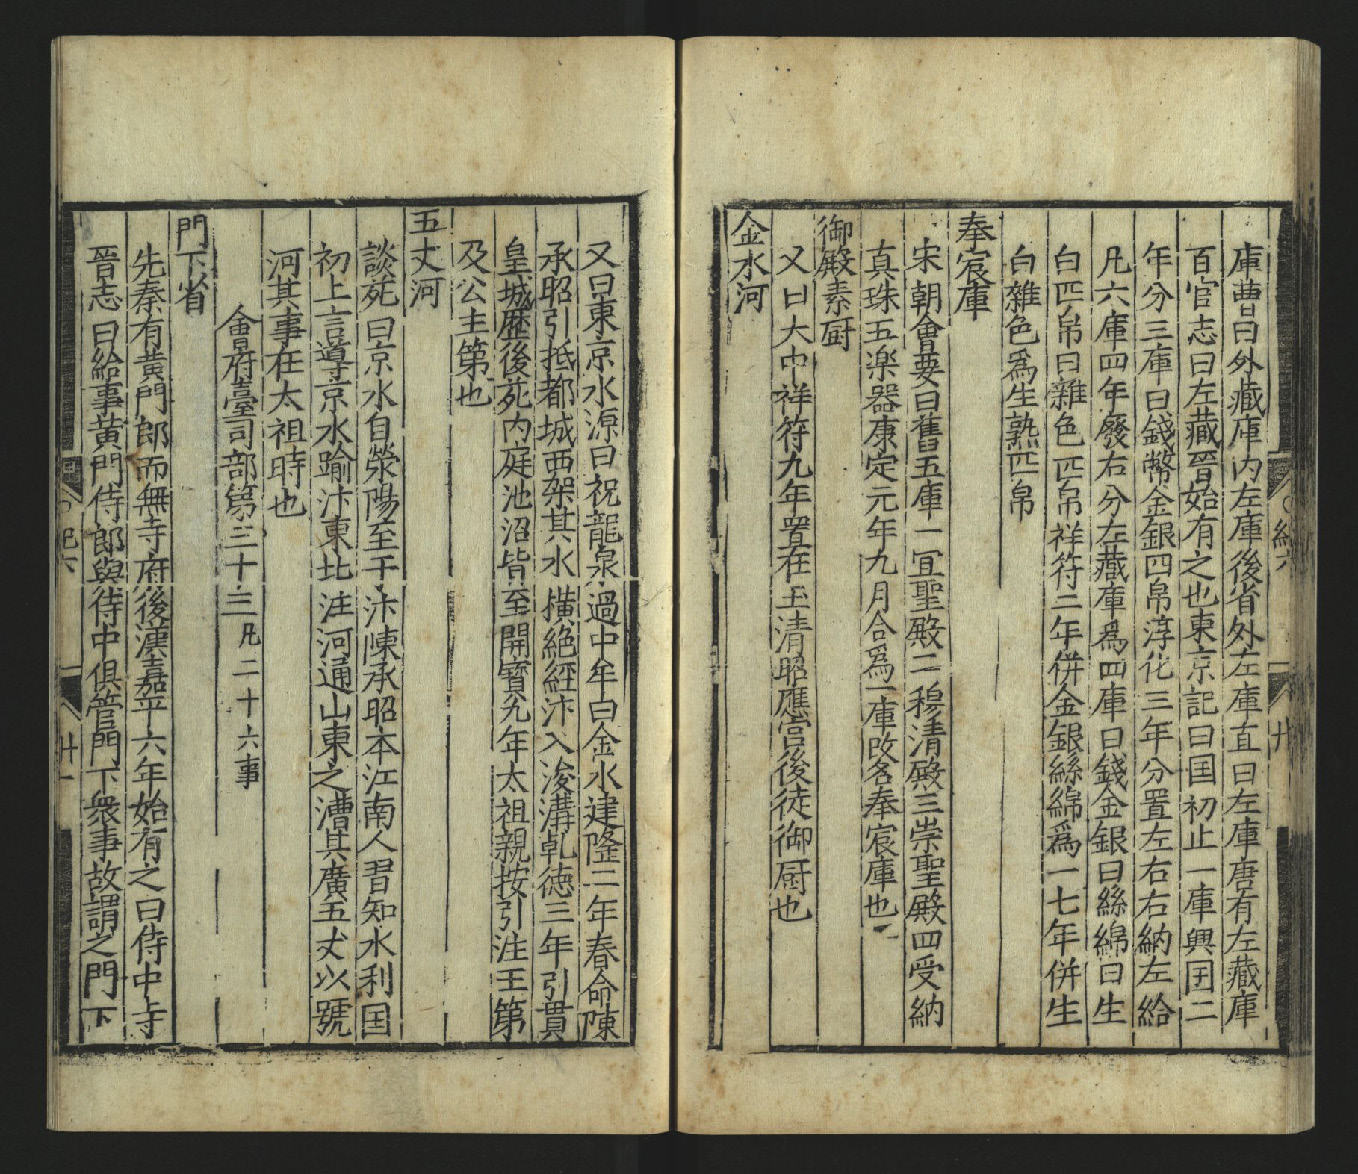 庫曹曰外藏庫内左庫後省外左庫直曰左庫唐有左藏庫
百官志曰左藏晉始有之也東京記曰国初止一庫興囯二
年分三庫曰錢幣金銀四帛淳化三年分置左右右納左給
凡六庫四年廢右分左藏庫爲四庫曰錢金銀曰絲綿曰生
白匹帛曰雜色匹帛祥符二年併金銀絲綿爲一七年併生
白雜色爲生熟匹帛
奉宸庫
宋朝會要曰舊五庫一冝聖殿二穆清殿三崇聖殿四受納
真珠五楽器康定元年九月合爲一庫改名奉宸庫也
御殿素厨
又曰大中祥符九年置在玉清昭應宮後徒御厨也
金水河
紀六
廿
又曰東京水源曰祝龍泉過中牟白金水建隆二年春命陳
承昭引抵都城西架其水橫絶經汴入浚溝乹徳三年引貫
皇城歷後苑内庭池沼皆至開寳九年太祖親按引注王第
及公主第也
五丈河
談苑曰京水自滎陽至于汴陳承昭本江南人習知水利国
初上言導京水踰汴東北注河通山東之漕其廣五丈以號
河其事在太祖時也
會府臺司部第三十三凡二十六事
門下省
先秦有黄門郎而無寺府後漢嘉平六年始有之曰侍中寺
晉志曰給事黄門侍郎與侍中俱管門下衆事故謂之門下
紀六
廿一